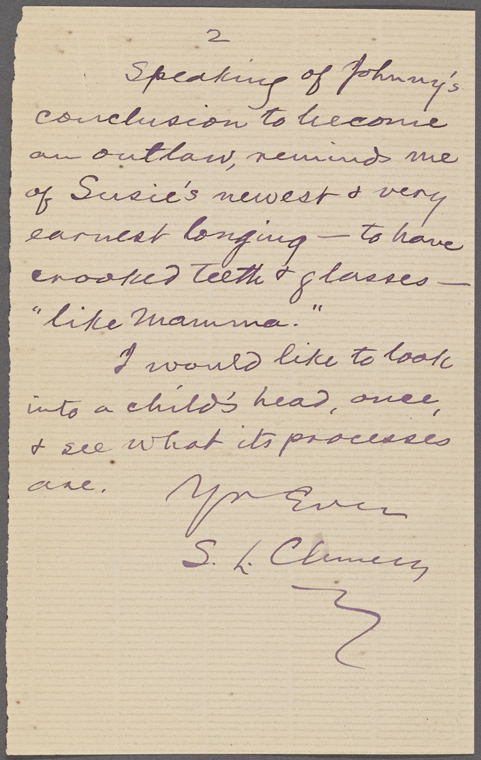 2
Speaking of Johnny's
conclusion to become
an outlaw, reminds me
of Susie's newest & very
earnest longing — to have
crooked teeth & glasses —
"like Mamma."
I would like to look
into a child's head, once,
& see what its processes
are.
Yr Ever
S. L. Clemens